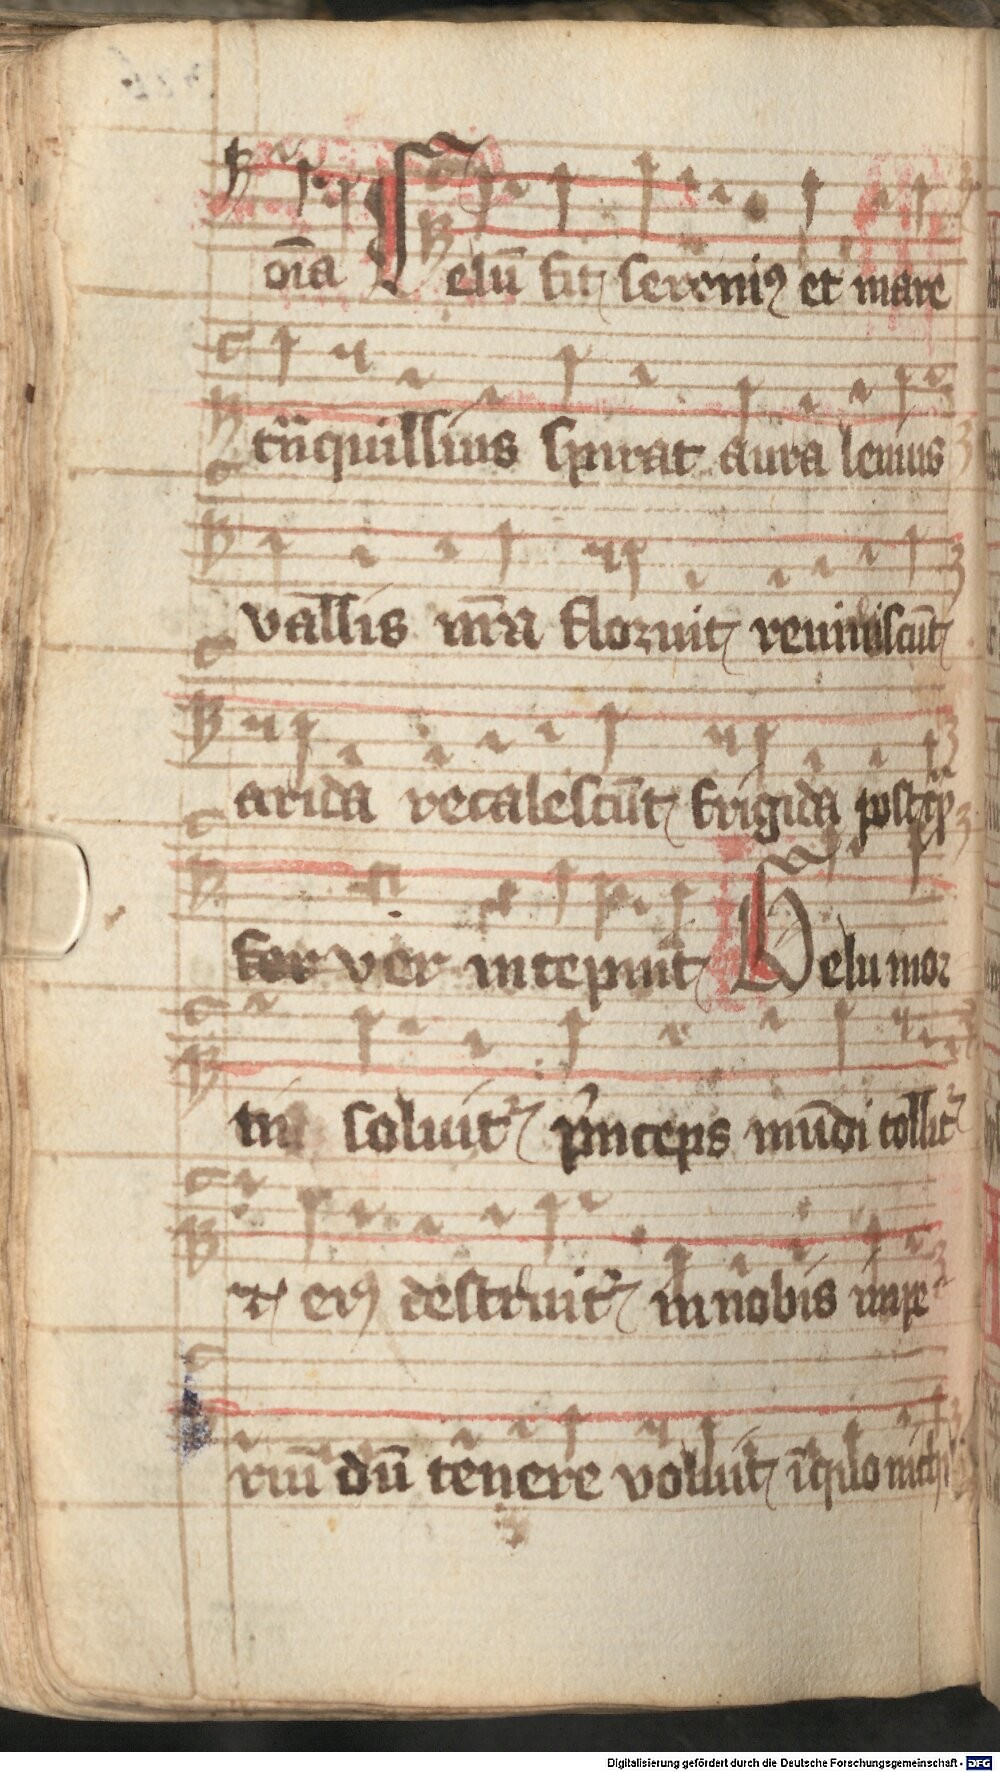 oīa Celū fit serenī9 et mare
tn̄quillius spirat aura leuius
vallis nr̄a floruit reuiuiscūt
arida recalescūt frigida post q̄
fer ver intepuit Gelu mor
tis soluitr princeps mūdi tollit
r et ei9 destruitr in nobis impe
riū dū tenere voluit ī quo nichil
Digitalisierung gefördert durch die Deutsche Forschungsgemeinschaft - DFG